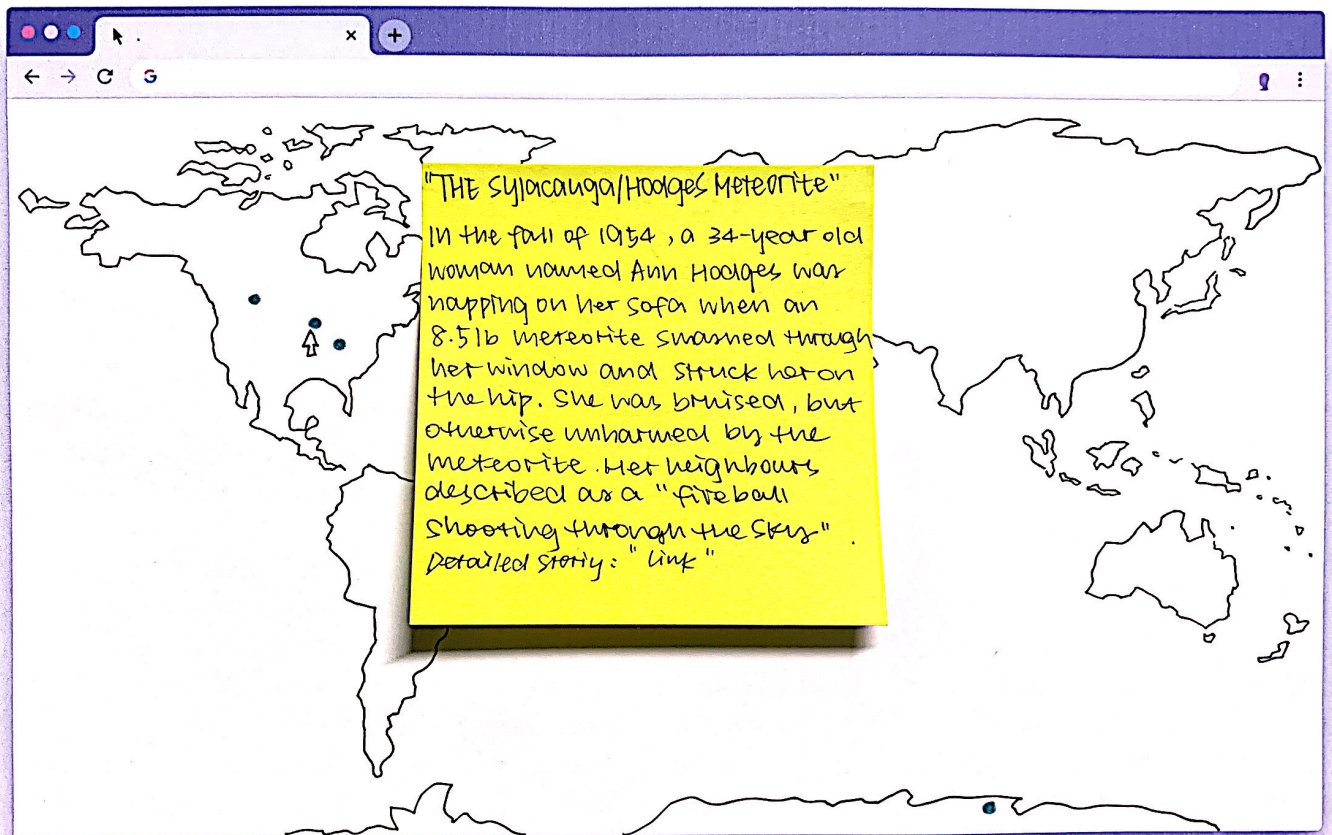 "THE Sylacauga/Hodges Meteorite"
In the fall of 1954, a 34-year old
woman named Ann Hodges was
napping on her sofa when an
8.5lb meteorite smashed through
her window and struck her on
the hip. She was bruised, but
otherwise unharmed by the
meteorite. Her neighbours
described as a "fireball
shooting through the sky".
Detailed storiy: "link"